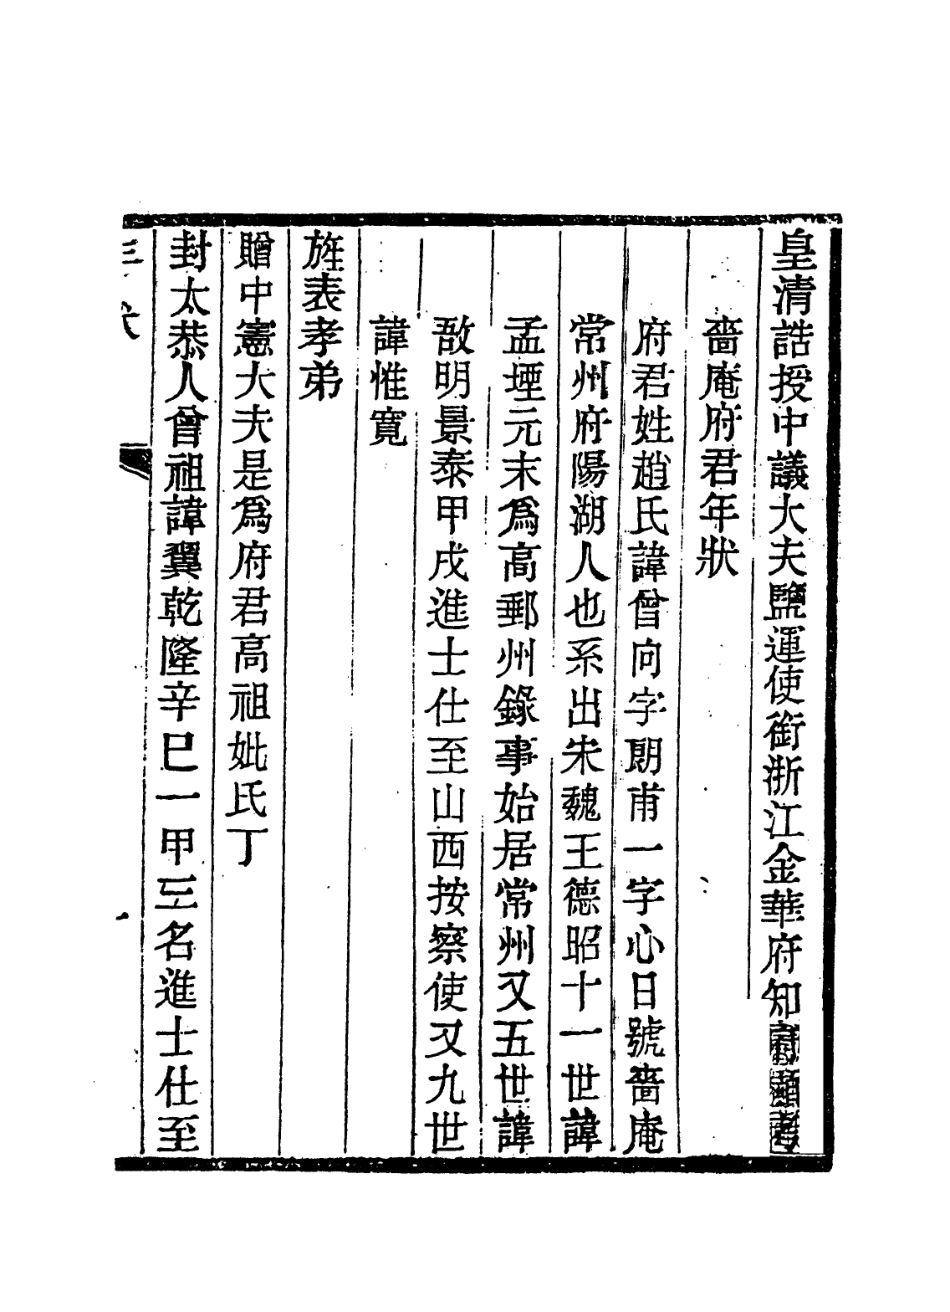 皇清誥授中議大夫鹽運使銜浙江金華府知府顯考
嗇庵府君年狀
府君姓趙氏諱曾向字朗甫一字心日號嗇庵
常州府陽湖人也系出宋魏王德昭十一世諱
孟堙元末爲高郵州錄事始居常州又五世諱
敔明景泰甲戌進士仕至山西按察使又九世
諱惟寬
旌表孝弟
贈中憲大夫是爲府君高祖妣氏丁
封太恭人曾祖諱翼乾隆辛巳一甲三名進士仕至